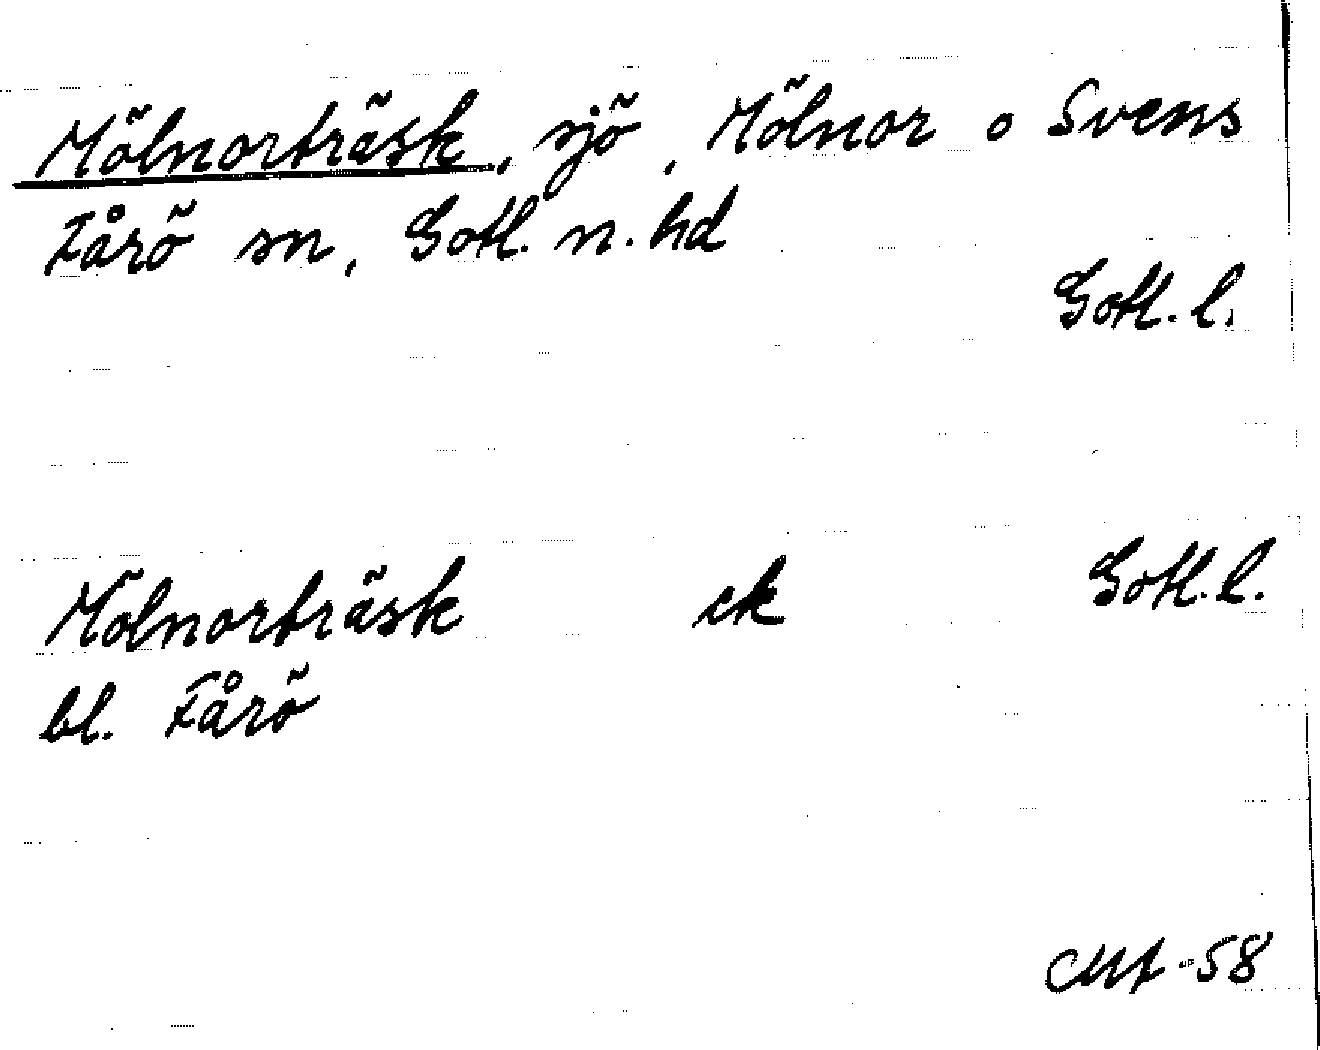 Mölnorträsk, sjö, Mölnor o Svens
Fårö sn, Gotl. n. hd
Gotl. l.
Mölnorträsk ek Gotl. l.
bl. Fårö
-58